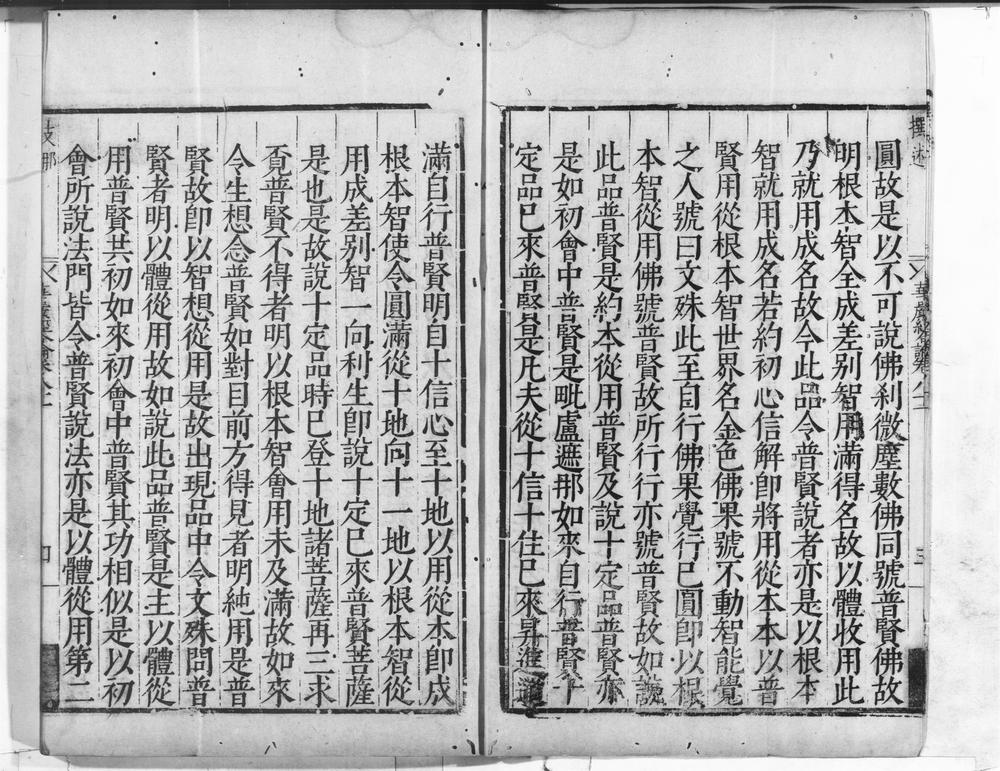 撰述
華嚴經合論卷八十二
三
圓故是以不可說佛刹微塵數佛同號普賢佛故
明根本智全成差别智用滿得名故以體收用此
乃就用成名故令此品令普賢說者亦是以根本
智就用成名若約初心信解卽將用從本本以普
賢用從根本智世界名金色佛果號不動智能覺
之人號曰文殊此至自行佛果覺行巳圓卽以根
本智從用佛號普賢故所行行亦號普賢故如說
此品普賢是約本從用普賢及說十定品普賢亦
是如初會中普賢是毗盧遮那如來自行普賢十
定品巳來普賢是凡夫從十信十住巳來昇進
滿自行普賢明自十信心至十地以用從本卽成
根本智使令圓滿從十地向十一地以根本智從
用成差别智一向利生卽說十定巳來普賢菩薩
是也是故說十定品時巳登十地諸菩薩再三求
覓普賢不得者明以根本智會用未及滿故如來
令生想念普賢如對目前方得見者明純用是普
賢故卽以智想從用是故出現品中令文殊問普
賢者明以體從用故如說此品普賢是主以體從
用普賢共初如來初會中普賢其功相似是以初
會所說法門皆令普賢說法亦是以體從用第二
支那
華嚴經合論卷八十二
四